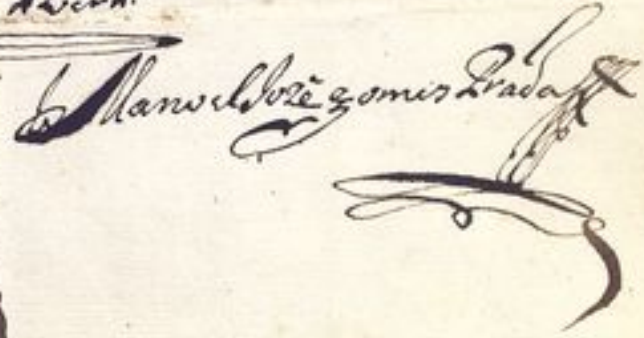 Manoel Jozê gomes Prada